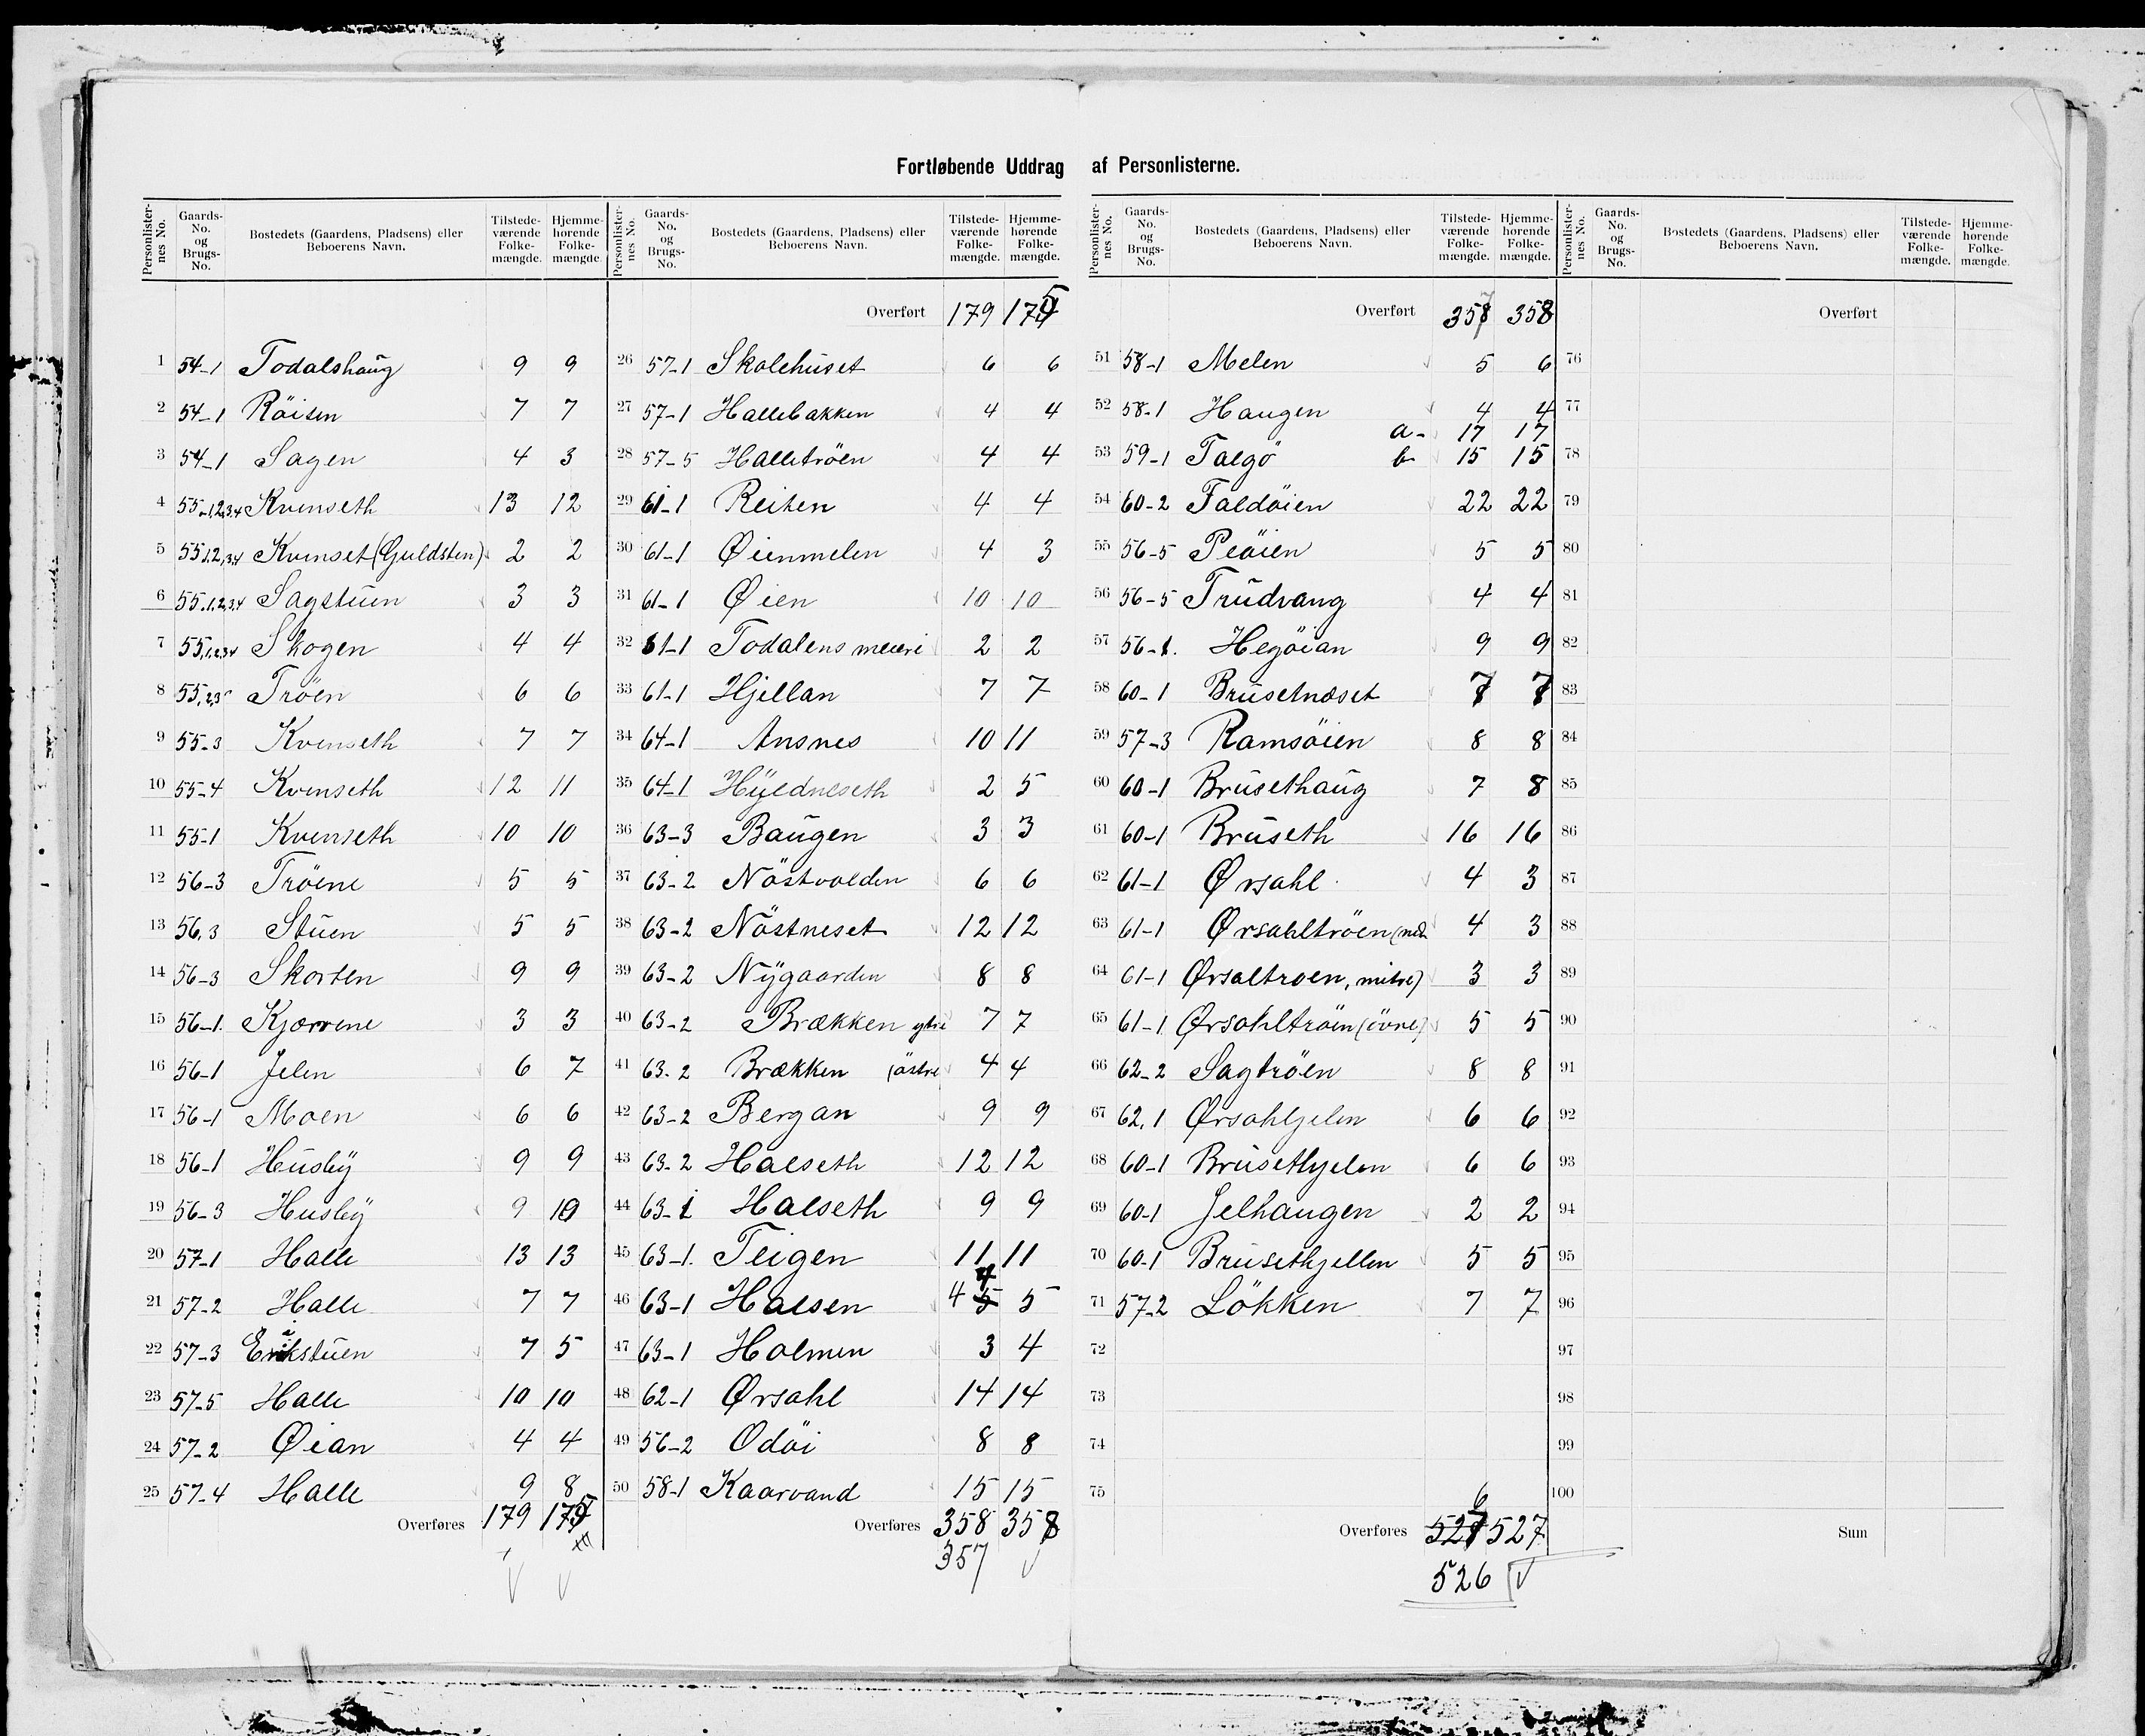 Fortløbende Uddrag af Personlisterne.
Personlisternes No. Gaards-No. og Brugs-No. Bostedets (Gaardens, Pladsens) eller Beboerens Navn. Tilstedeværende Folkemængde. Hjemmehørende Folkemængde.
1 54-1 Todalshaug 9 9
2 54-1 Röisen 7 7
3 54-1 Sagen 4 3
4 55-1,2,3,4 Kvenseth 13 12
5 55,1,2,3,4 Kvenset (Guldsten) 2 2
6 55,1,2,3,4 Sagstuen 3 3
7 55,1,2,3,4 Skogen 4 4
8 55,2,3 Tröen 6 6
9 55-3 Kvenseth 7 7
10 55-4 Kvenseth 12 11
11 55-1 Kvenseth 10 10
12 56-3 Tröene 5 5
13 56,3 Stuen 5 5
14 56-3 Skorten 9 9
15 56-1. Kjærrene 3 3
16 56-1 Jelen 6 7
17 56-1 Moen 6 6
18 56-1 Husby 9 9
19 56-3 Husby 9 10
20 57-1 Halle 13 13
21 57-2 Halle 7 7
22 57-3 Erikstuen 7 5
23 57-5 Halle 10 10
24 57-2 Øian 4 4
25 57-4 Halle 9 8
Overføres 179 175
Personlisternes No. Gaards-No. og Brugs-No. Bostedets (Gaardens, Pladsens) eller Beboerens Navn. Tilstedeværende Folkemængde. Hjemmehørende Folkemængde.
Overført 179 175
26 57-1 Skolehuset 6 6
27 57-1 Hallebakken 4 4
28 57-5 Halletröen 4 4
29 61-1 Reiten 4 4
30 61-1 Øienmelen 4 3
31 61-1 Øien 10 10
32 61-1 Todalens meieri 2 2
33 61-1 Hjellan 7 7
34 64-1 Ansnes 10 11
35 64-1 Hyldneseth 2 5
36 63-3 Baugen 3 3
37 63-2 Nöstvolden 6 6
38 63-2 Nöstneset 12 12
39 63-2 Nygaarden 8 8
40 63-2 Brækken ytre 7 7
41 63-2 Brækken (östre 4 4
42 63-2 Bergan 9 9
43 63-2 Halseth 12 12
44 63-1 Halseth 9 9
45 63-1. Teigen 11 11
4
46 63-1 Halsen 4 5 5
47 63-1 Holmen 3 4
48 62-1 Ørsahl 14 14
49 56-2 Odöi 8 8
50 58-1 Kaarvand 15 15
Overføres 358 358
357
Personlisternes No. Gaards-No. og Brugs-No. Bostedets (Gaardens, Pladsens) eller Beboerens Navn. Tilstedeværende Folkemængde. Hjemmehørende Folkemængde.
Overført 357 358
51 58-1 Melen 5 6
52 58-1 Haugen 4 4
a- 17 17
53 59-1 Talgö b 15 15
54 60-2 Faldöien 22 22
55 56-5 Peöien 5 5
56 56-5 Trudvang 4 4
57 56-1. Hegöian 9 9
58 60-1 Brusetnæset 7 7
59 57-3 Ramsöien 8 8
60 60-1 Brusethaug 7 8
61 60-1 Bruseth 16 16
62 61-1 Ørsahl 4 3
63 61-1 Ørsahltröen (ned 4 3
64 61-1 Ørsaltroen, mitre) 3 3
65 61-1 Ørsahltröen (övre) 5 5
66 62-2 Sagtröen 8 8
67 62,1 Ørsahlgjelen 6 6
68 60-1 Brusethjelen 6 6
69 60-1 Jelhaugen 2 2
70 60-1 Brusethjellen 5 5
71 57-2 Lökken 7 7
72
73
74
75
6
Overføres 527 527
526
Personlisternes No. Gaards-No. og Brugs-No. Bostedets (Gaardens, Pladsens) eller Beboerens Navn. Tilstedeværende Folkemængde. Hjemmehørende Folkemængde.
Overført
76
77
78
79
80
81
82
83
84
85
86
87
88
89
90
91
92
93
94
95
96
97
98
99
100
Sum